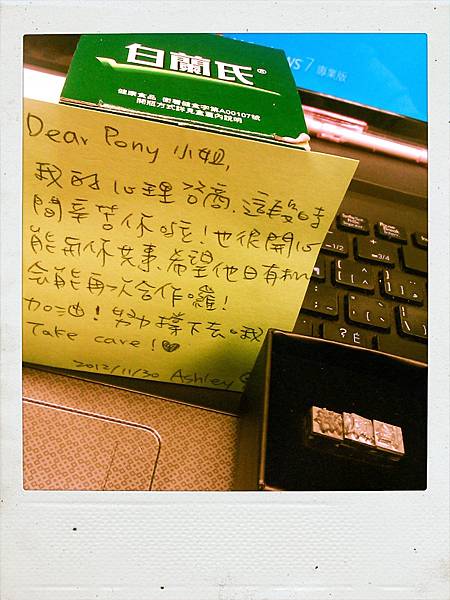 白蘭氏®
健康食品 衛署健食字第A00107號
開瓶方式詳見盒蓋內說明
7 專業版
Dear Pony 小姐,
我的心理咨商,這段時
間辛苦你啦!也很開心
能與你共事,希望他日有機
會能再次合作囉!
加油!努力撐下去哦
Take care!♥
2012/11/30 Ashley